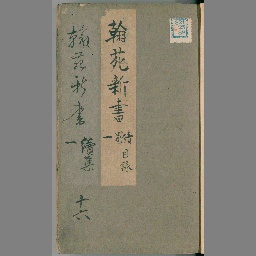 翰苑新書
續集
目錄
一
翰苑新書
續集
一
十六